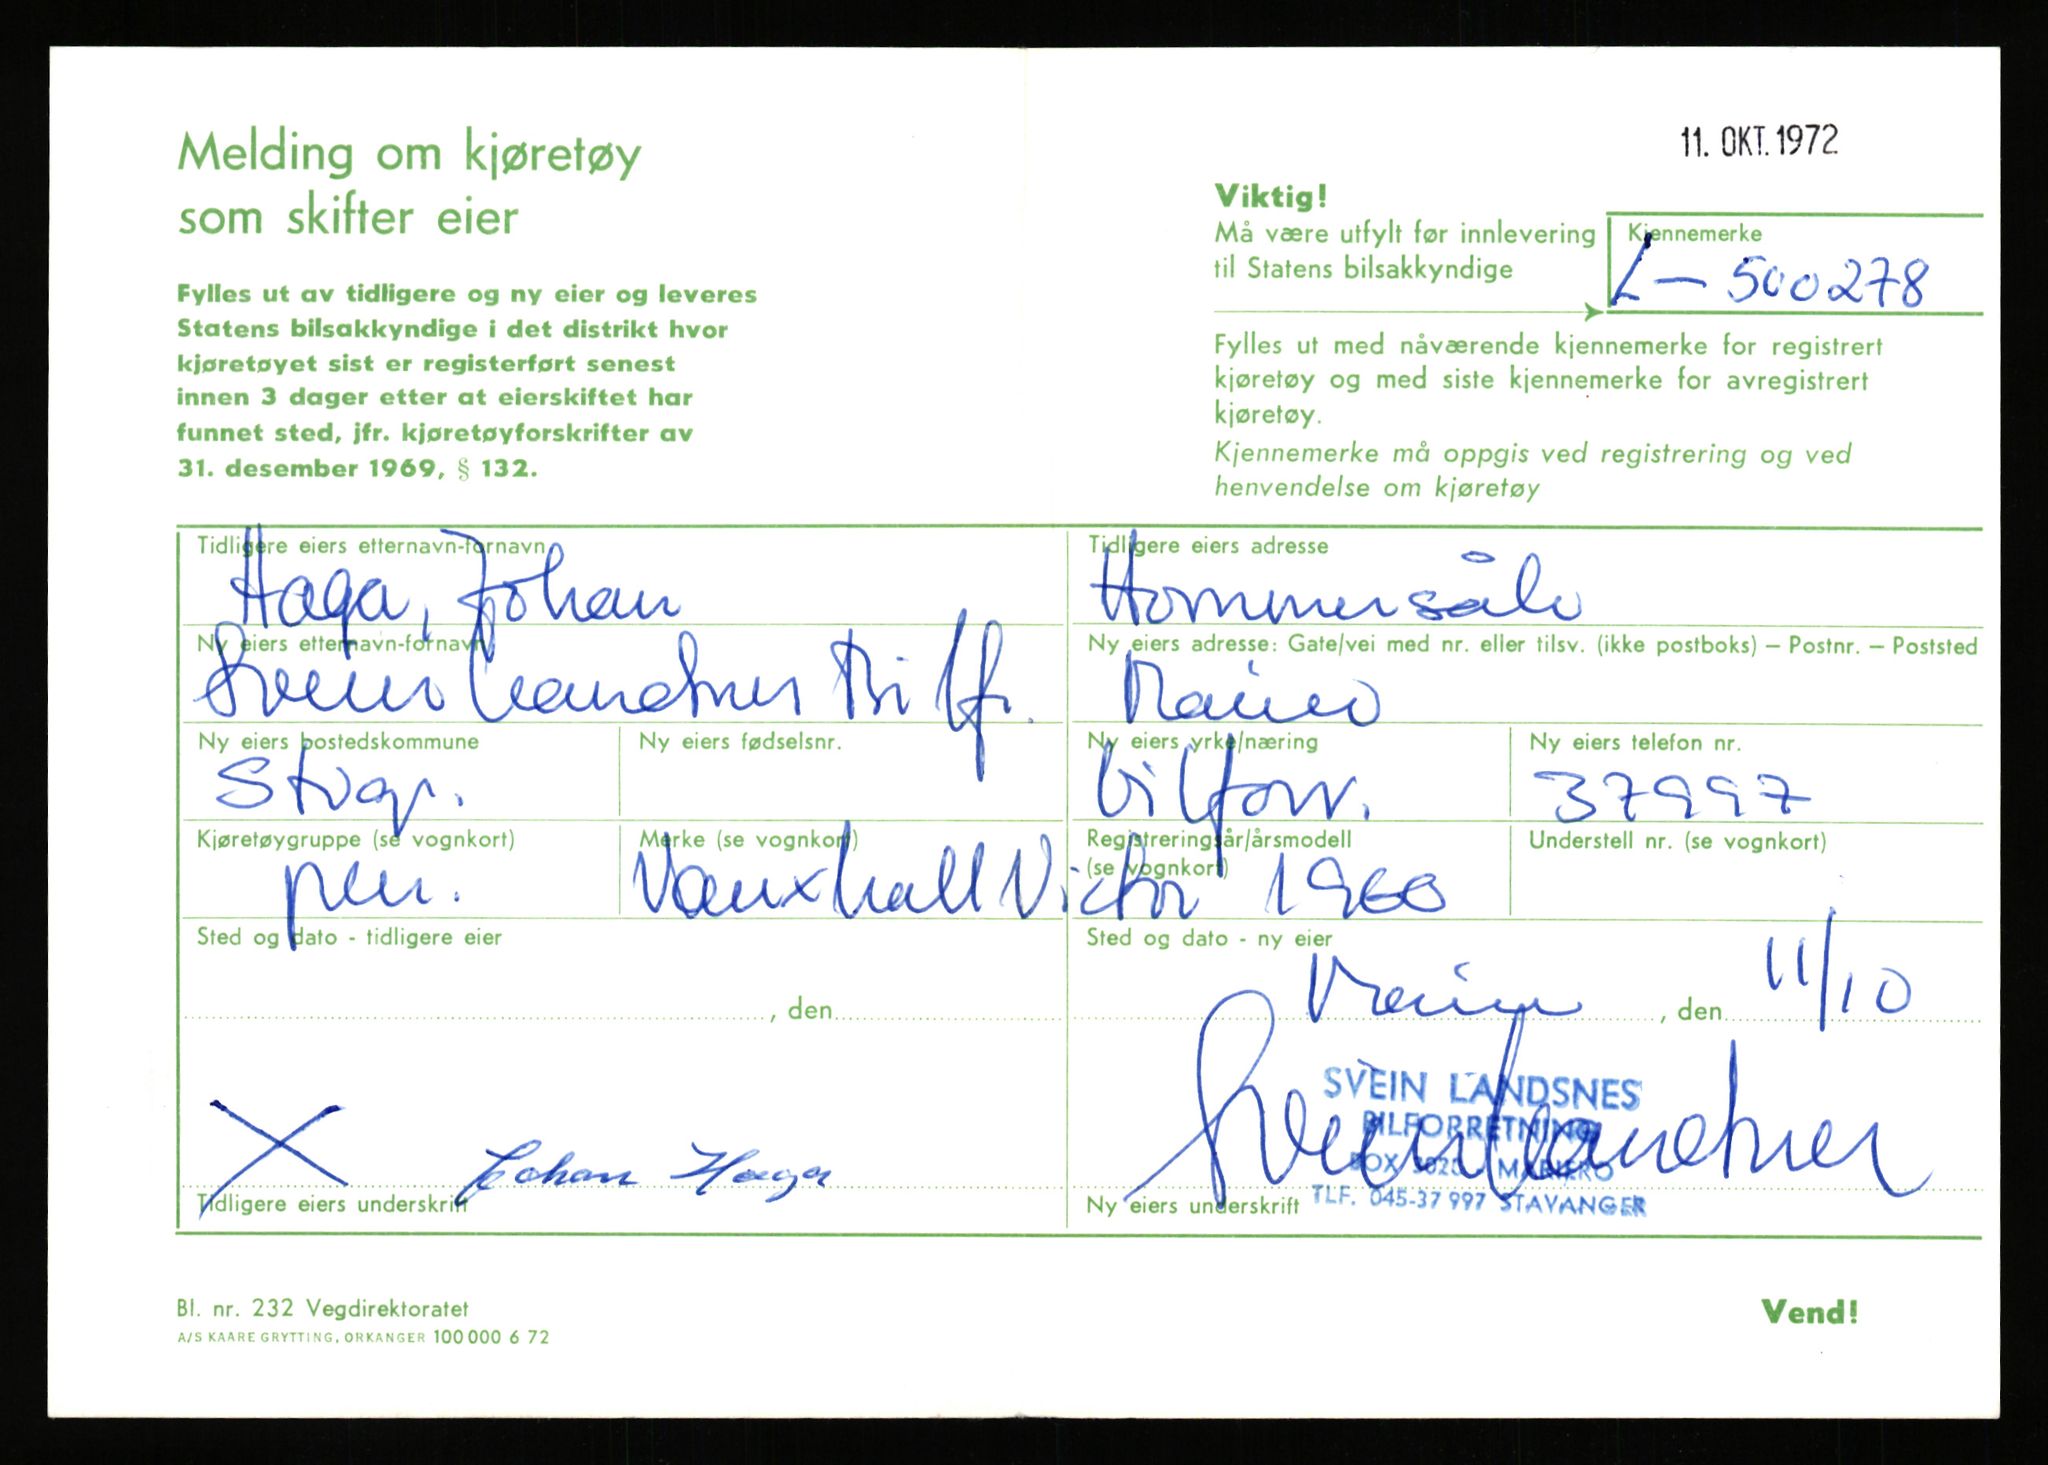 11. OKT. 1972
Melding om kjøretøy
som skifter eier
Fylles ut av tidligere og ny eier og leveres
Statens bilsakkyndige i det distrikt hvor
kjøretøyet sist er registerført senest
innen 3 dager etter at eierskiftet har
funnet sted, jfr. kjøretøyforskrifter av
31. desember 1969, § 132.
Viktig!
Må være utfylt før innlevering
til Statens bilsakkyndige
Kjennemerke
L-500278
Fylles ut med nåværende kjennemerke for registrert
kjøretøy og med siste kjennemerke for avregistrert
kjøretøy.
Kjennemerke må oppgis ved registrering og ved
henvendelse om kjøretøy
Tidligere eiers etternavn-fornavn
Haga, Johan
Tidligere eiers adresse
Hommersåk
Ny eiers etternavn-fornavn
Svein Landsnes Bilf.
Ny eiers adresse: Gate/vei med nr. eller tilsv. (ikke postboks) – Postnr. – Poststed
Ny eiers bostedskommune
Stvgr.
Ny eiers fødselsnr.
Ny eiers yrke/næring
bilforr.
Ny eiers telefon nr.
37997
Kjøretøygruppe (se vognkort)
per.
Merke (se vognkort)
Vauxhall Victor
Registreringsår/årsmodell
(se vognkort)
1960
Understell nr. (se vognkort)
Sted og dato - tidligere eier
, den
Sted og dato - ny eier
, den 11/10
X Johan Haga
Tidligere eiers underskrift
Svein Landsnes
SVEIN LANDSNES
BILFORRETNING
BOX 3020 MARIERO
TLF. 045-37 997 STAVANGER
Ny eiers underskrift
Bl. nr. 232 Vegdirektoratet
A/S KAARE GRYTTING, ORKANGER 100 000 6 72
Vend!